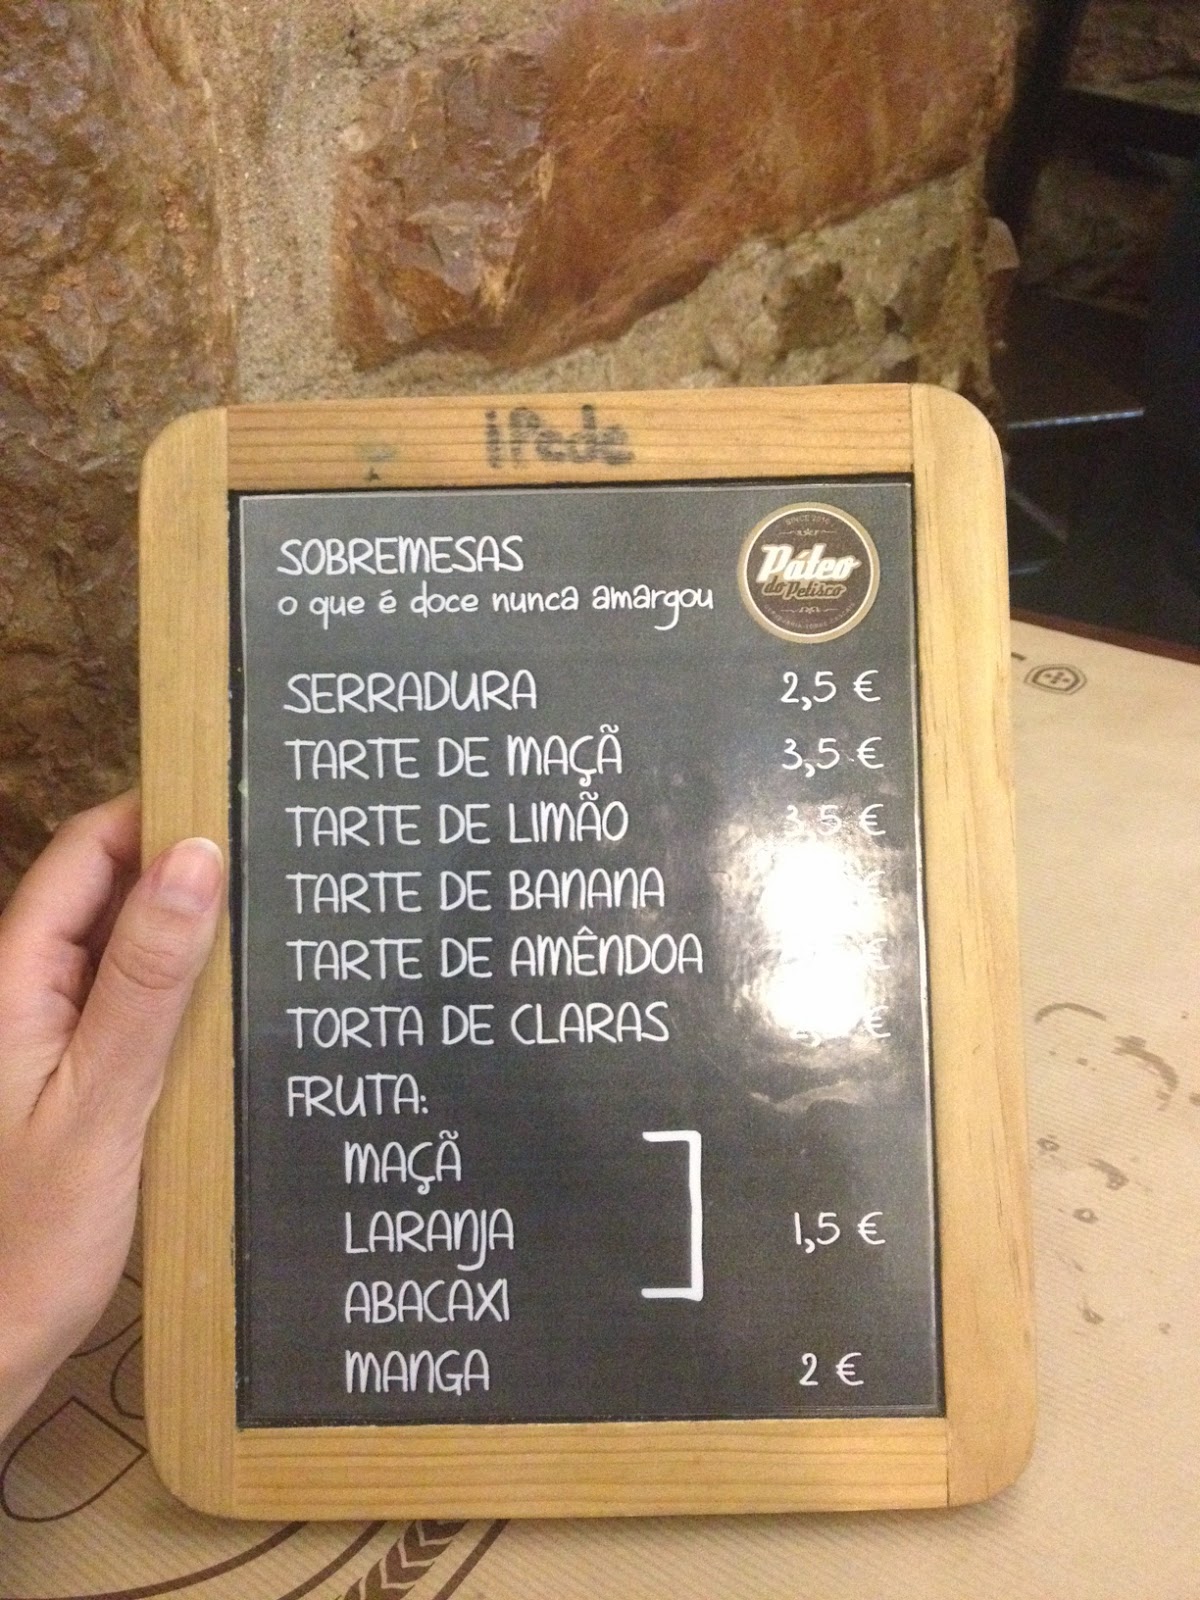 iPede
SOBREMESAS
o que é doce nunca amargou
SINCE 2010
Páteo
do Petisco
SERRADURA 2,5 €
TARTE DE MAÇÃ 3,5 €
TARTE DE LIMÃO 3,5 €
TARTE DE BANANA
TARTE DE AMÊNDOA €
TORTA DE CLARAS €
FRUTA:
MAÇÃ
LARANJA 1,5 €
ABACAXI
MANGA 2 €